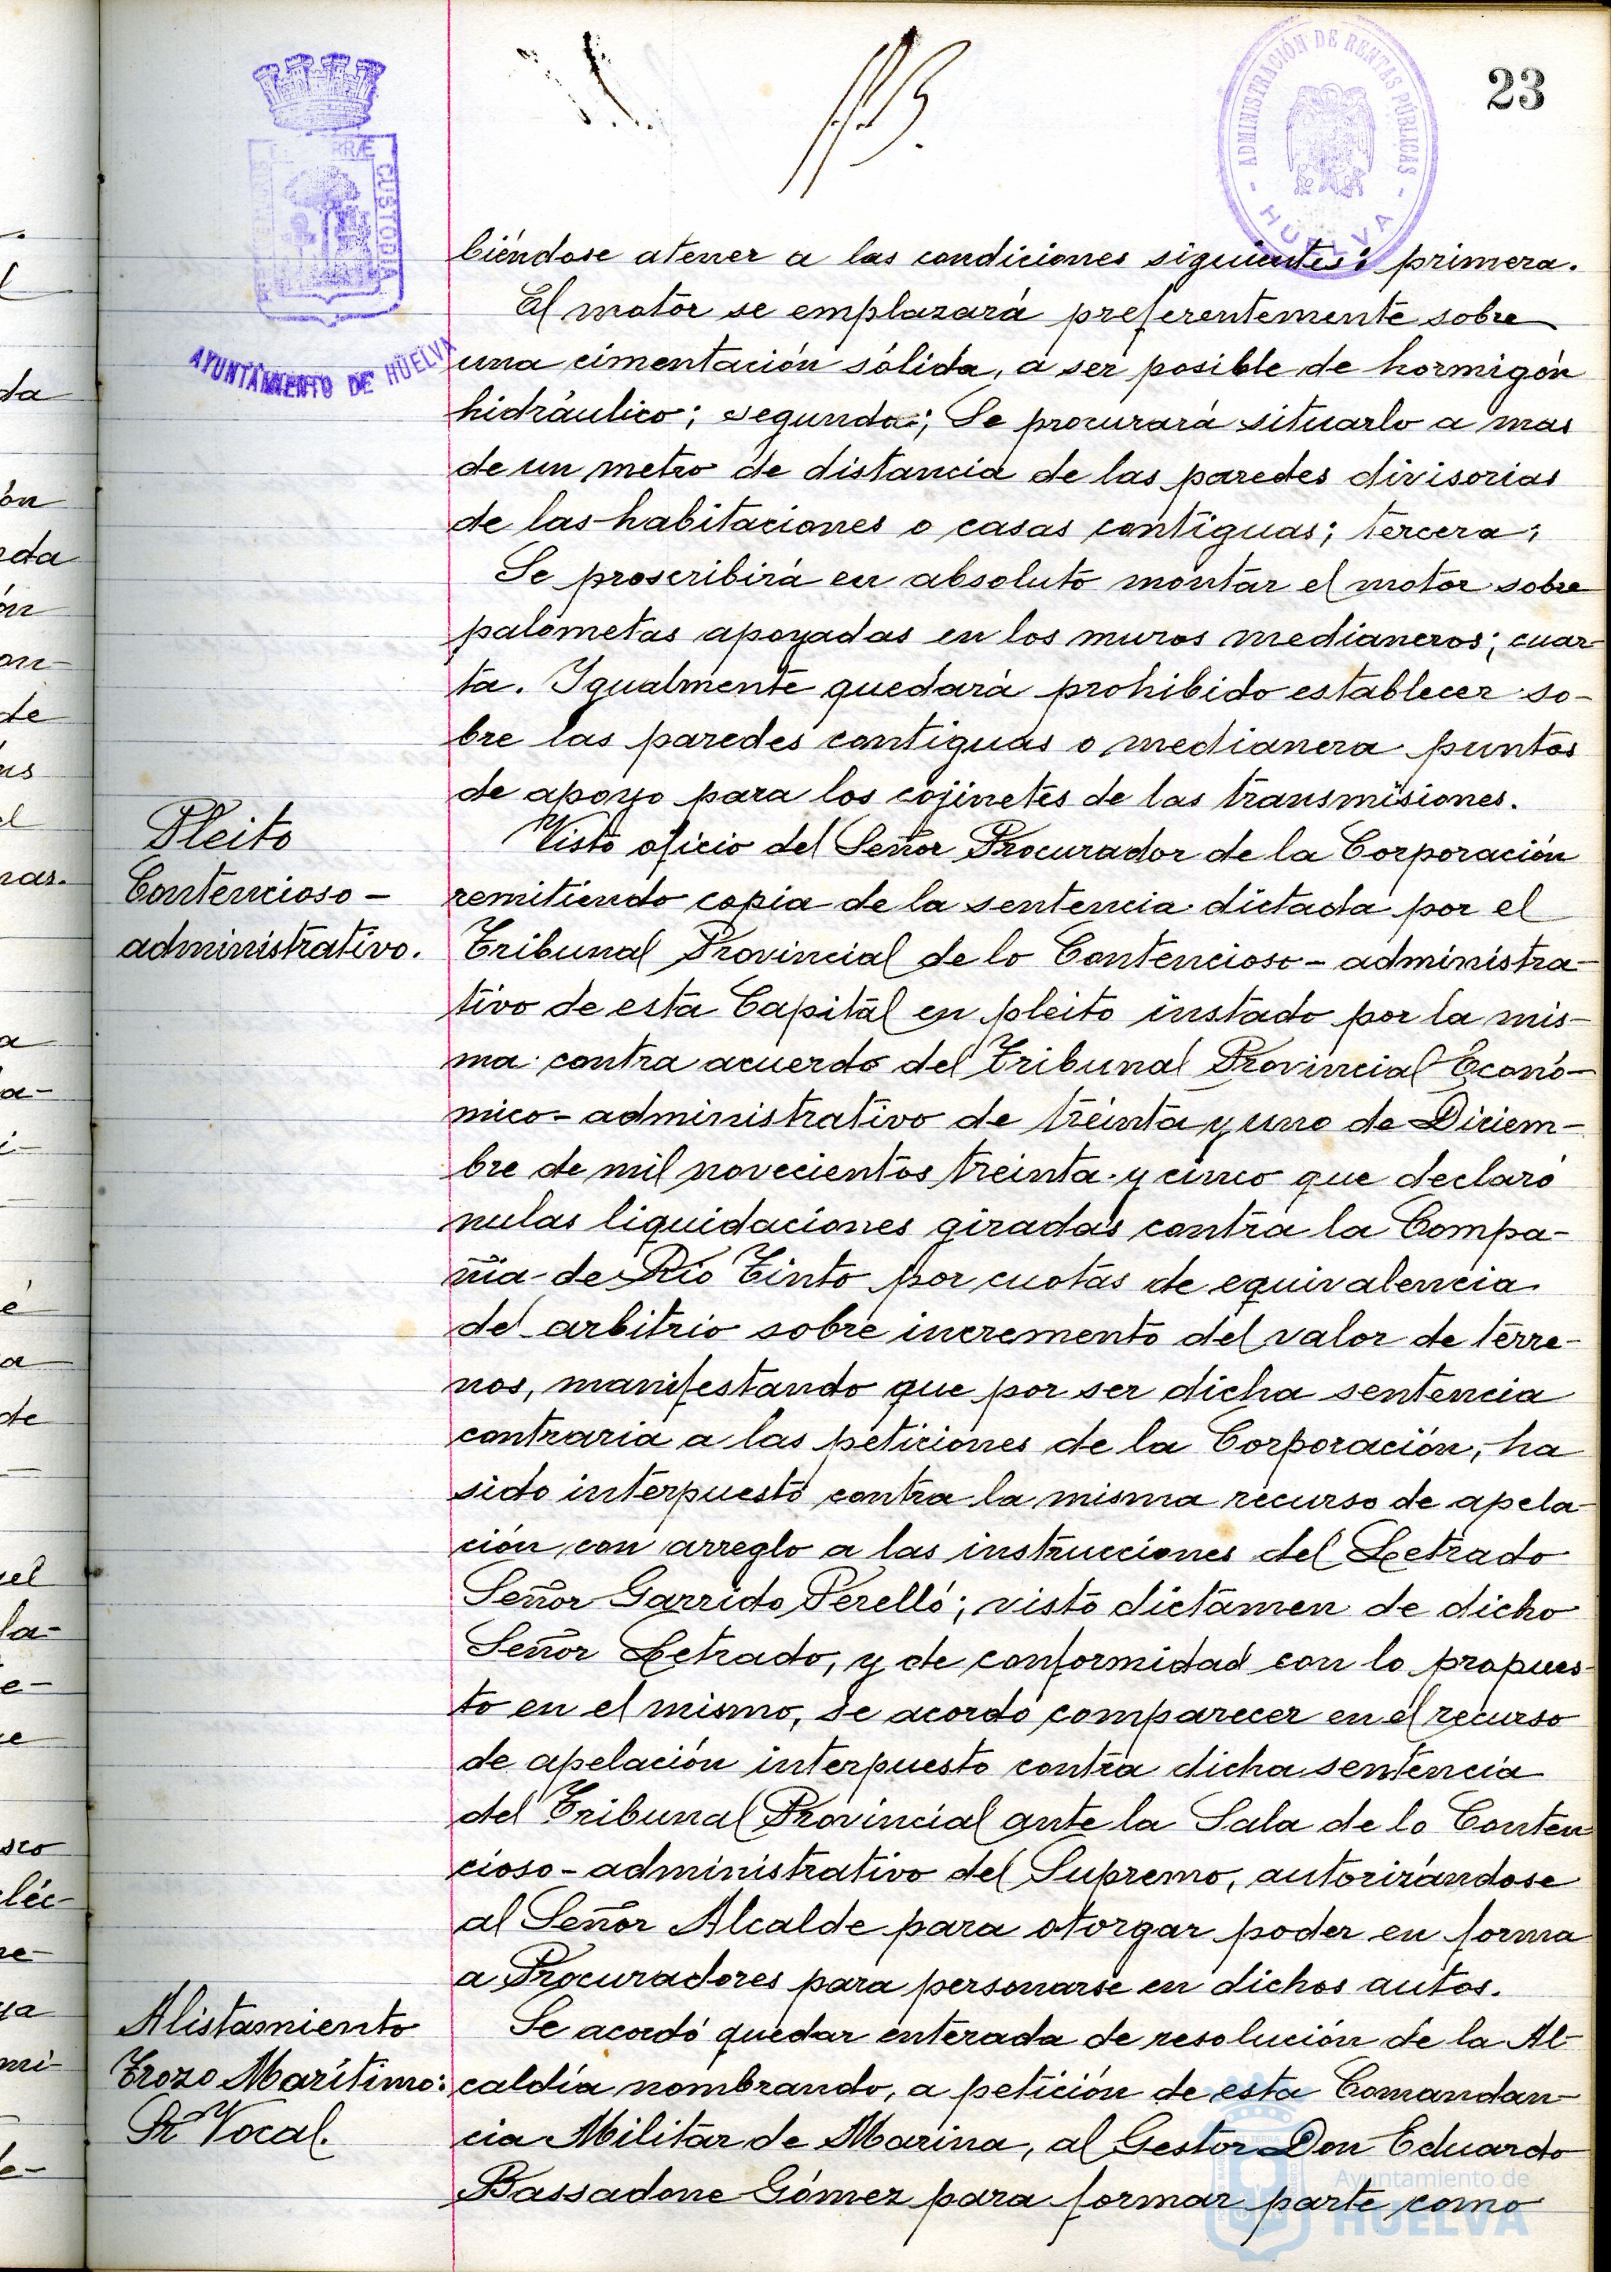 23
ADMINISTRACIÓN DE RENTAS PÚBLICAS
- HUELVA -
CUSTODIA
AYUNTAMIENTO DE HUELVA
biéndose atener a las condiciones siguientes: primera.
El motor se emplazará preferentemente sobre
una cimentación sólida, a ser posible de hormigón
hidráulico; segunda; Se procurará situarlo a mas
de un metro de distancia de las paredes divisorias
de las habitaciones o casas contiguas; tercera;
Se proscribirá en absoluto montar el motor sobre
palometas apoyadas en los muros medianeros; cuar-
ta. Igualmente quedará prohibido establecer so-
bre las paredes contiguas o medianera puntos
de apoyo para los cojinetes de las transmisiones.
Pleito
Contencioso-
administrativo.
Visto oficio del Señor Procurador de la Corporación
remitiendo copia de la sentencia dictada por el
Tribunal Provincial de lo Contencioso-administra-
tivo de esta Capital en pleito instado por la mis-
ma contra acuerdo del Tribunal Provincial Econó-
mico-administrativo de treinta y uno de Diciem-
bre de mil novecientos treinta y cinco que declaró
nulas liquidaciones giradas contra la Compa-
ñia de Rio Tinto por cuotas de equivalencia
del arbitrio sobre incremento del valor de terre-
nos, manifestando que por ser dicha sentencia
contraria a las peticiones de la Corporación, ha
sido interpuesto contra la misma recurso de apela-
ción con arreglo a las instrucciones del Letrado
Señor Garrido Perelló; visto dictámen de dicho
Señor Letrado, y de conformidad con lo propues-
to en el mismo, se acordó comparecer en el recurso
de apelación interpuesto contra dicha sentencia
del Tribunal Provincial ante la Sala de lo Conten
cioso-administrativo del Supremo, autorizándose
al Señor Alcalde para otorgar poder en forma
a Procuradores para personarse en dichos autos.
Alistamiento
Trozo Marítimo:
Sr Vocal.
Se acordó quedar enterada de resolución de la Al-
caldía nombrando, a petición de esta Comandan-
cia Militar de Marina, al Gestor Don Eduardo
Bassadone Gómez para formar parte como
Ayuntamiento de
HUELVA